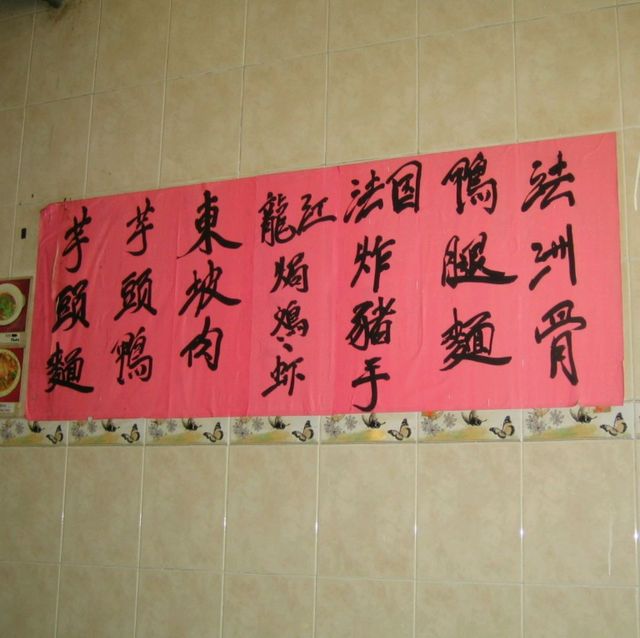 法洲骨
鴨腿麵
法国炸豬手
龍江焗鴻虾
東坡肉
芋頭鴨
芋頭麵